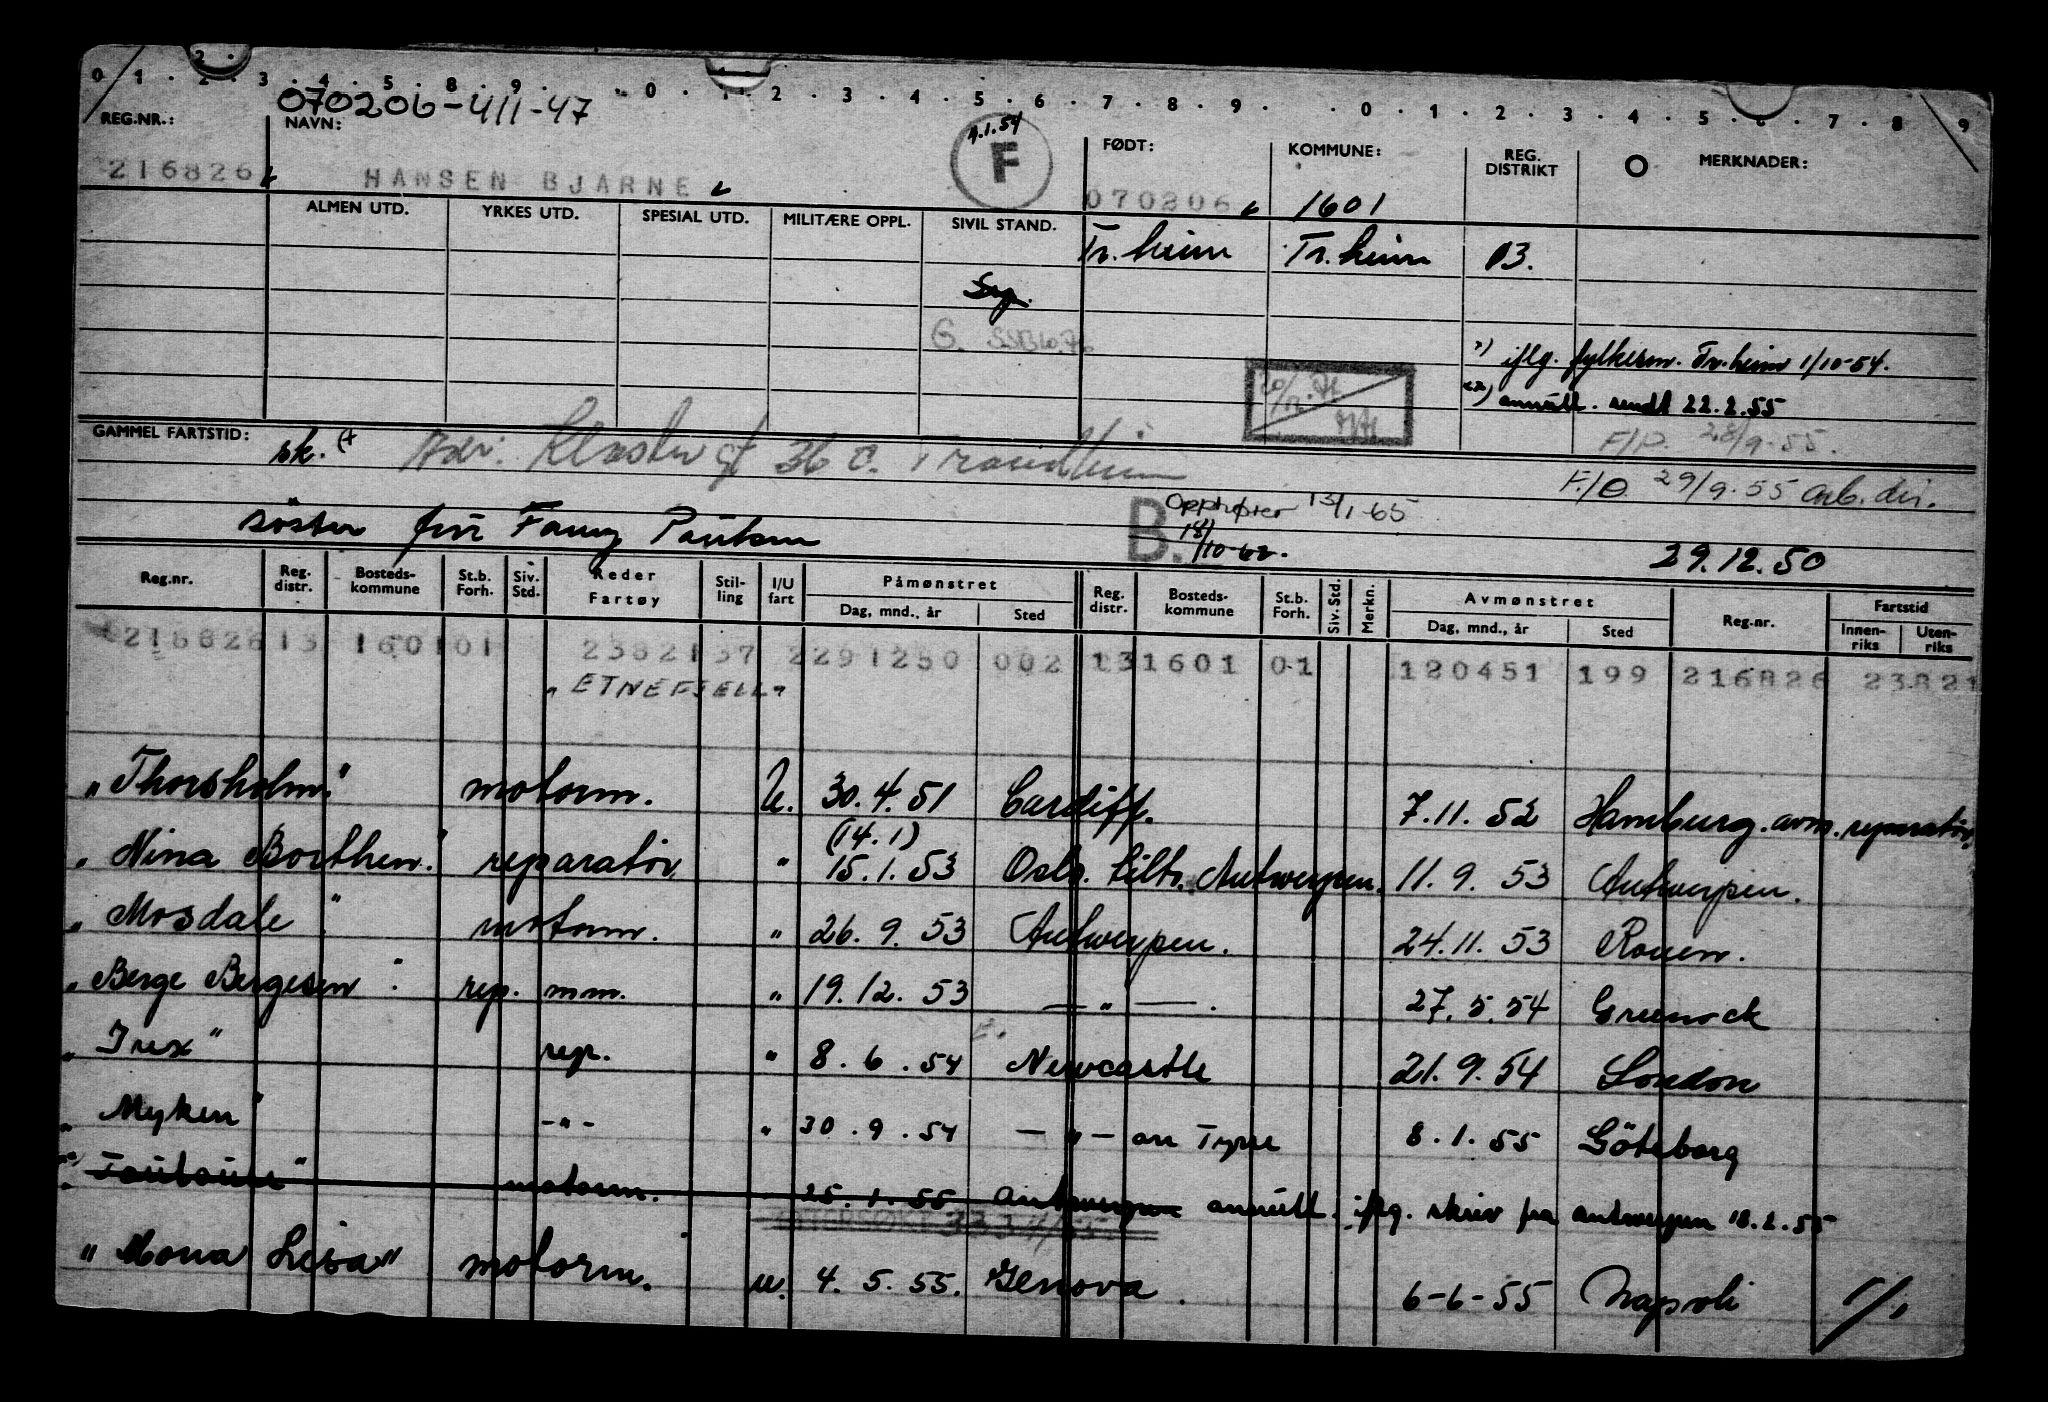 0 1 . 2 . 3 . 4 . 5 . 8 . 9 . 0 . 1 . 2 . 3 . 4 . 5 . 6 . 7 . 8 . 9 . . 0 . 1 . 2 . 3 . 4 . 5 . 6 . 7 . 8 . 9
070206-411-47
REG.NR.: NAVN: FØDT: KOMMUNE: REG. DISTRIKT O MERKNADER:
4.1.54
F
216826 HANSEN BJARNE 070206 1601
ALMEN UTD. YRKES UTD. SPESIAL UTD. MILITÆRE OPPL. SIVIL STAND. Tr.heim Tr.heim 03.
G.
x) iflg. fylkesm. Tr.heim 1/10-54.
xx) annull. sendt 22.2.55
F/P. 28/9-55.
GAMMEL FARTSTID: sk. Adr. Klostergt 36 c. Trondheim
F./O. 29/9-55 arb. dir.
søster frū Fanny Paulsen
B. Opphører 13/1-65
18/10-62.
29.12.50
Reg.nr. Reg. distr. Bosteds-kommune St.b. Forh. Siv. Std. Reder Fartøy Stil-ling I/U fart Påmønstret Dag, mnd., år Sted Reg. distr. Bosteds-kommune St.b. Forh. Siv. Std. Merkn. Avmønstret Dag, mnd., år Sted Reg.nr. Fartstid Innen-riks Uten-riks
21682613 160101 2382137 2291250 002 131601 01 120451 199 216826 23821
"ETNEFJELL"
"Thorsholm" motorm. U. 30.4.51 Cardiff. 7.11.52 Hamburg. avm. reparatør.
"Nina Borthen" reparatør " (14.1) 15.1.53 Oslo. tiltr. Antwerpen. 11.9.53 Antwerpen.
"Mosdale" motorm. " 26.9.53 Antwerpen. 24.11.53 Rouen.
"Berge Bergesen" rep. mm. " 19.12.53 — " — . 27.5.54 Greenock
"Irex" rep. " 8.6.54 Newcastle 21.9.54 London
"Myken" -"- " 30.9.54 — " — on Tyne 8.1.55 Göteborg
"Toulouse" motorm. 25.1.55 Antwerpen annull. iflg. skriv fra antwerpen 18.2.55
"Mona Lisa" motorm. u. 4.5.55. Genova. 6-6-55 Napoli 1/1